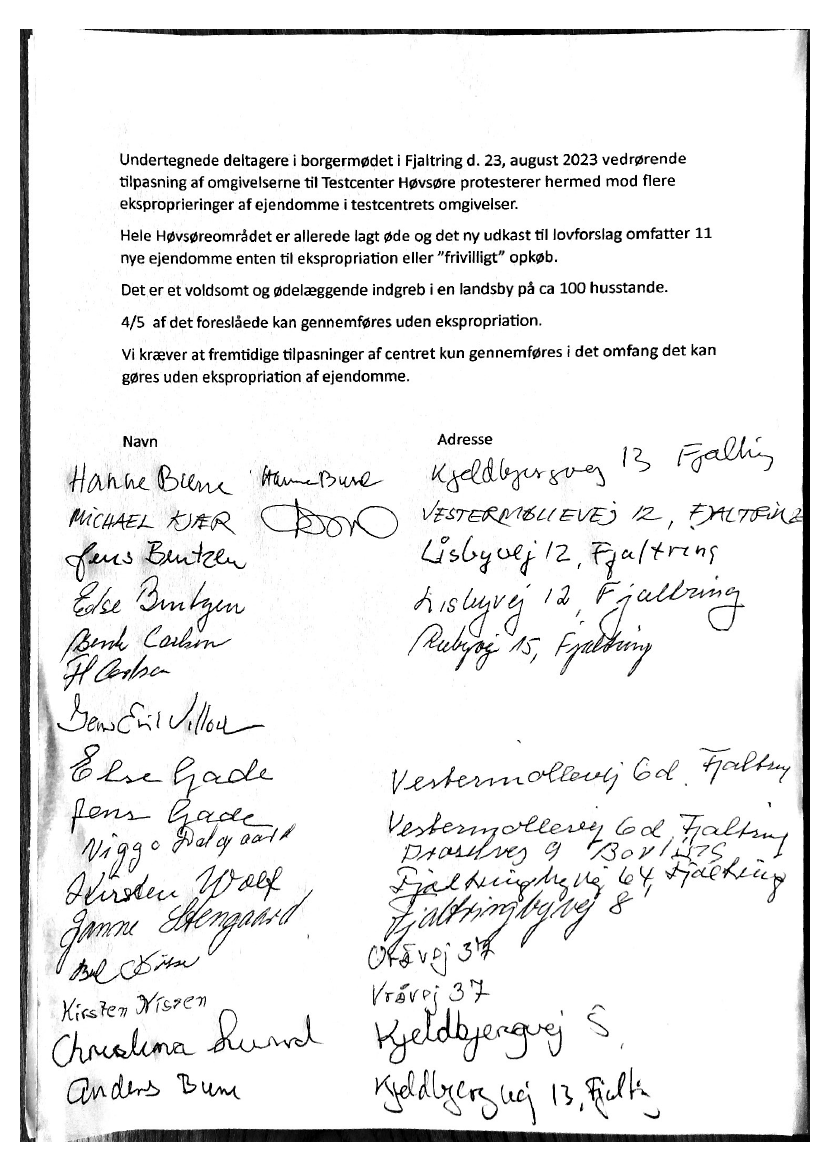 Undertegnede deltagere i borgermødet i Fjaltring d. 23, august 2023 vedrørende
tilpasning af omgivelserne til Testcenter Høvsøre protesterer hermed mod flere
eksproprieringer af ejendomme i testcentrets omgivelser.
Hele Høvsøreområdet er allerede lagt øde og det ny udkast til lovforslag omfatter 11
nye ejendomme enten til ekspropriation eller "frivilligt" opkøb.
Det er et voldsomt og ødelæggende indgreb i en landsby på ca 100 husstande.
4/5 af det foreslåede kan gennemføres uden ekspropriation.
Vi kræver at fremtidige tilpasninger af centret kun gennemføres i det omfang det kan
gøres uden ekspropriation af ejendomme.
Navn Adresse
Hanne Hanne Kjeldbjergvej 13
MICHAEL KJÆR VESTERMØLLEVEJ 12,
Jens Bentzen Lisbyvej 12, Fjaltring
Else Bentzen Lisbyvej 12, Fjaltring
Carlsen 15, Fjaltring
Carlsen
Jens
Else Gade Vestermøllevej 6d. Fjaltring
Jens Gade Vestermøllevej 6d, Fjaltring
Viggo Dalgaard 9
Kirsten Wolf Fjaltringbyvej 64, Fjaltring
Janne Stengaard Fjaltringbyvej 8
Vråvej 37
Kirsten Nissen Vråvej 37
Christina Lund Kjeldbjergvej 5
Anders Kjeldbjergvej 13,